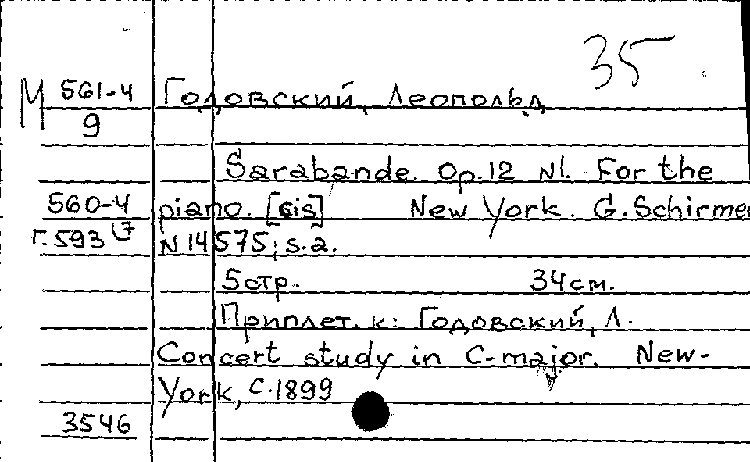 35
М 561-4 Годовский, Леопольд
9
Sarabande. Op.12 N1. For the
560-4 piano. [cis] New York. G. Schirmer
г. 593 N 14575; s.a.
5стр. 34см.
Приплет. к: Годовский, Л.
Concert study in C-major. New-
York, c.1899
3546